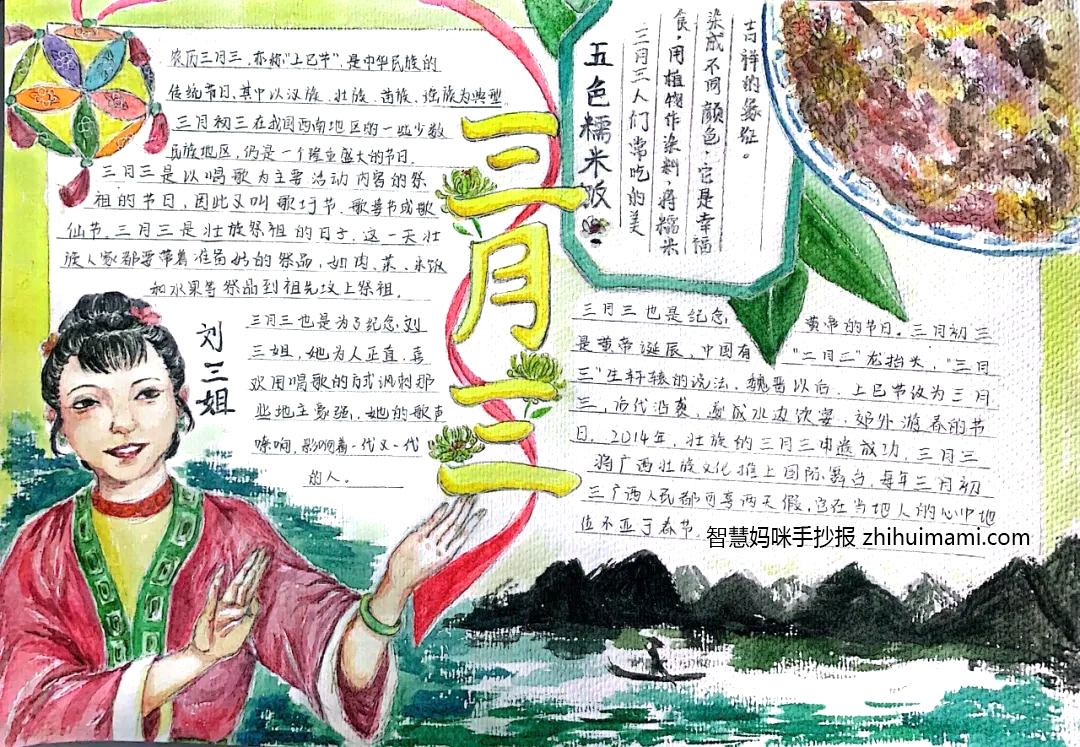 农历三月三，亦称“上巳节”，是中华民族的
传统节日，其中以汉族、壮族、苗族、瑶族为典型。
三月初三在我国西南地区的一些少数
民族地区，仍是一个隆重盛大的节日。
三月三是以唱歌为主要活动内容的祭
祖的节日，因此又叫歌圩节、歌婆节或歌
仙节。三月三是壮族祭祖的日子，这一天壮
族人家都要带着准备好的祭品，如肉、菜、米饭
和水果等祭品到祖先坟上祭祖。
三月三
三月三
刘三姐
三月三也是为了纪念刘
三姐，她为人正直，喜
欢用唱歌的方式讽刺那
些地主豪强，她的歌声
嘹响，影响着一代又一代
的人。
五色糯米饭
三月三人们常吃的美
食，用植物作染料，将糯米
染成不同颜色，它是幸福
吉祥的象征。
三月三也是纪念
黄帝的节日。三月初三
是黄帝诞辰，中国有
“二月二”龙抬头，“三月
三”生轩辕的说法，魏晋以后，上巳节改为三月
三，后代沿袭，遂成水边饮宴、郊外游春的节
日。2014年，壮族的三月三申遗成功，三月三
将广西壮族文化推上国际舞台，每年三月初
三广西人民都可享两天假，它在当地人的心中地
位不亚于春节。
智慧妈咪手抄报 zhihuimami.com